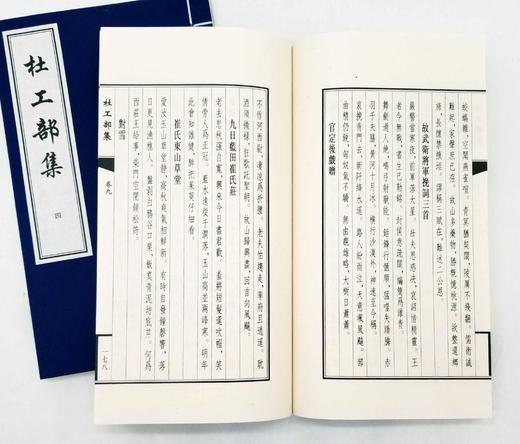 蛟螭雜，空聞燕雀喧。青冥猶契闊，陵厲不飛翻。儒術誠
難起，家聲庶已存。故山多藥物，勝概憶桃源。欲整還鄉
旆，長懷禁掖垣。謬稱三賦在，難述二公恩。
故武衛將軍挽詞三首
嚴警當寒夜，前軍落大星。壯夫思感決，哀詔惜精靈。王
者今無戰，書生已勒銘。封侯意疏闊，編簡爲誰青。
舞劍過人絕，鳴弓射獸能。銛鋒行愜順，猛噬失蹻騰。赤
羽千夫膳，黃河十月冰。橫行沙漠外，神速至今稱。
哀挽青門去，新阡絳水遙。路人紛雨泣，天意颯風飄。部
曲精仍銳，匈奴氣不驕。無由睹雄略，大樹日蕭蕭。
官定後戲贈
不作河西尉，淒涼爲折腰。老夫怕趨走，率府且逍遙。耽
酒須微祿，狂歌託聖朝。故山歸興盡，回首向風飆。
九日藍田崔氏莊
老去悲秋強自寬，興來今日盡君歡。羞將短髮還吹帽，笑
倩旁人爲正冠。藍水遠從千澗落，玉山高並兩峰寒。明年
此會知誰健，醉把茱萸仔細看。
崔氏東山草堂
愛汝玉山草堂靜，高秋爽氣相鮮新。有時自發鐘磬響，落
日更見漁樵人。盤剝白鴉谷口栗，飯煮青泥坊底芹。何爲
西莊王給事，柴門空閉鎖松筠。
對雪
杜工部集 卷九 一七八
杜工部集 四